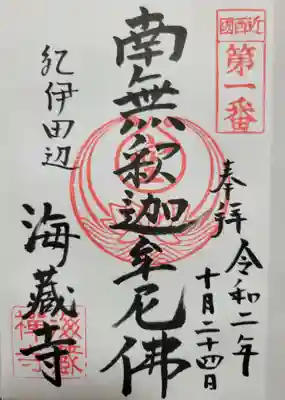 近西國
第一番
奉拝
令和二年
十月二十四日
南無釈迦牟尼佛
紀伊田辺
海蔵寺